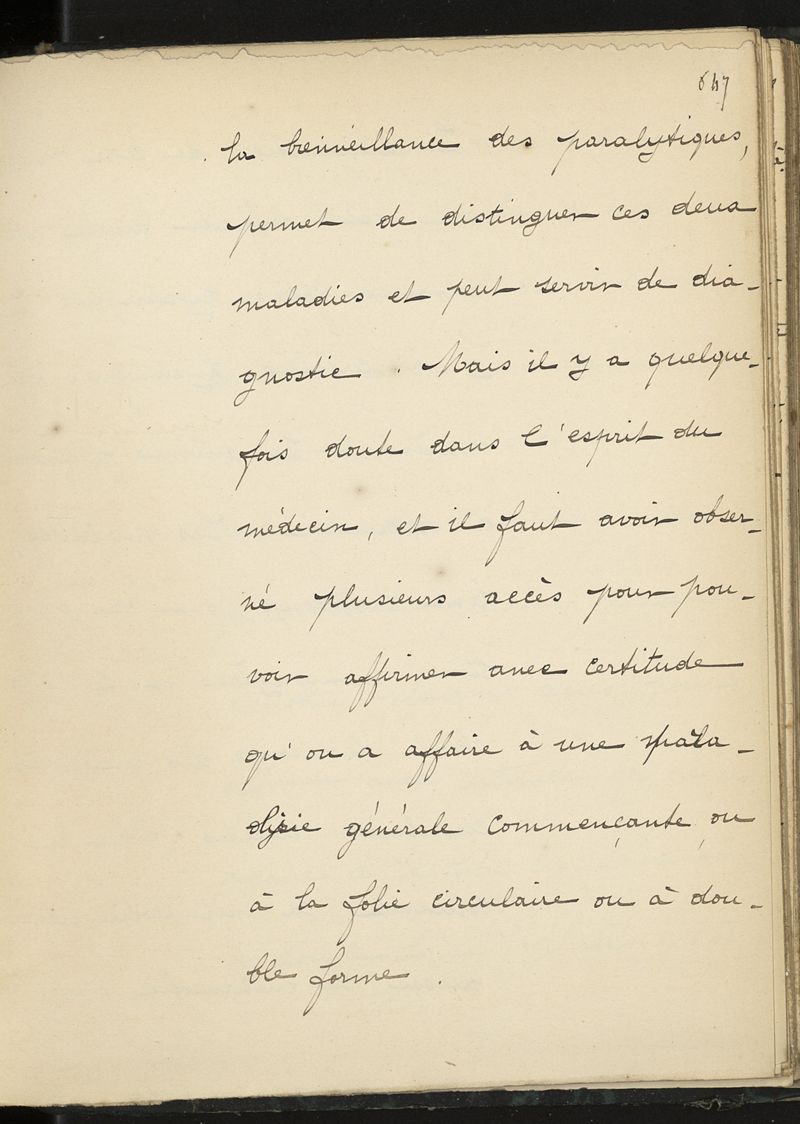 647
la bienveillance des paralytiques,
permet de distinguer ces deux
maladies et peut servir de dia-
gnostic. Mais il y a quelque-
fois doute dans l'esprit du
médecin, et il faut avoir obser-
vé plusieurs accès pour pou-
voir affirmer avec certitude
qu'on a affaire à une para-
lysie générale commençante, ou
à la folie circulaire ou à dou-
ble forme.